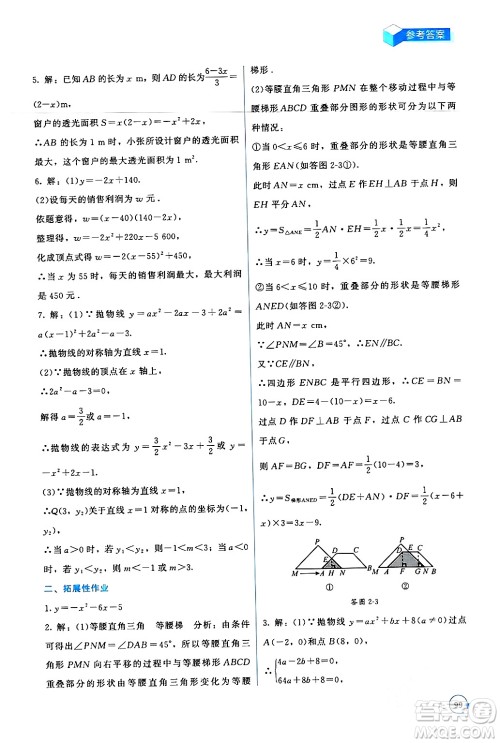 参考答案
5. 解：已知 AB 的长为 x m，则 AD 的长为 (6-3x)/3 =
(2-x) m，
窗户的透光面积 S=x(2-x)=-x²+2x=
-(x-1)²+1，
∴AB 的长为 1 m 时，小张所设计窗户的透光面积最大，最大透光面积为 1 m².
6. 解：(1)y=-2x+140.
(2)设每天的销售利润为 w 元，
依题意得，w=(x-40)(-2x+140)，
整理得，w=-2x²+220x-5 600，
化成顶点式得，w=-2(x-55)²+450，
∴当 x 为 55 时，每天的销售利润最大，最大利润
是 450 元.
7. 解：(1)∵抛物线 y=ax²-2ax-3+2a²=
a(x-1)²+2a²-a-3，
∴抛物线的对称轴为直线 x=1.
(2)∵抛物线的顶点在 x 轴上，
∴2a²-a-3=0，
解得 a=3/2 或 a=-1，
∴抛物线的表达式为 y=3/2x²-3x+3/2 或 y=
-x²+2x-1.
(3)∵抛物线的对称轴为直线 x=1，
∴Q(3，y₂)关于直线 x=1 的对称点的坐标为
(-1，y₂)，
∴当 a>0 时，若 y₁<y₂，则 -1<m<3；
当 a<0 时，若 y₁<y₂，则 m<-1 或 m>3.
二、拓展性作业
1. y=-x²-6x-5
2. 解：(1)等腰直角三角形 等腰梯形 分析：由条件
可以得到∠PNM=∠DAB=45°，所以移动过程
中，所以重叠部分首先是等腰直角三角形，等腰直角三角形
PMN 向右平移的过程中，逐渐进入等腰梯形，
重叠部分的形状由等腰直角三角形变化为等腰
梯形.
(2)等腰直角三角形 PMN 在整个移动过程中与等
腰梯形 ABCD 重叠部分图形的形状可分为以下两
种情况：
①当 0<x≤6 时，重叠部分的形状是等腰直角三
角形 EAN(如答图 2-3①).
此时 AN=x cm，过点 E 作 EH⊥AB 于点 H，则
EH 平分 AN，
∴EH=1/2AN=1/2x，
∴y=S△ANE=1/2AN·EH=1/2x·1/2x=1/4x²，
∴当 x=6 时，y=1/4×6²=9.
②当 6<x≤10 时，重叠部分的形状是等腰梯形
ANED(如答图 2-3②).
此时，AN=x cm，
∵∠PNM=∠B=45°，∴EN∥BC.
又∵CE∥BN，
∴四边形 ENBC 是平行四边形，CE=BN=
10-x，DE=4-(10-x)=x-6.
过点 D 作 DF⊥AB 于点 F，过点 C 作 CG⊥AB 于点 G，则
AF=BG，DF=AF=1/2×(10-4)=3，
∴y=S梯形ANED=1/2(DE+AN)·DF=1/2(x-6+
x)×3=3x-9.
① ②
答图 2-3
3. 解：(1)∵抛物线 y=ax²+bx+8(a≠0)过
点 A(-2，0)和点 B(8，0)，
∴{4a-2b+8=0，
64a+8b+8=0，